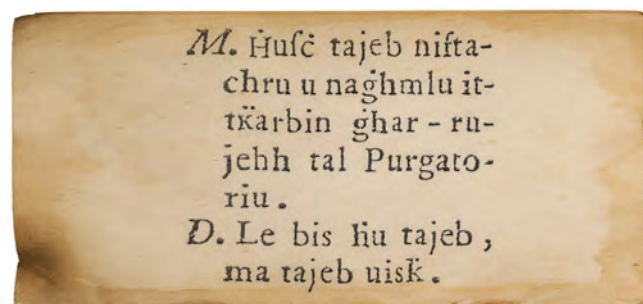 M. Ḣuſċ tajeb niſta-
chru u naġhmlu it-
tk̈arbin ġhar - ru-
jehh tal Purgato-
riu .
D. Le bis ħu tajeb ,
ma tajeb uisk̈ .